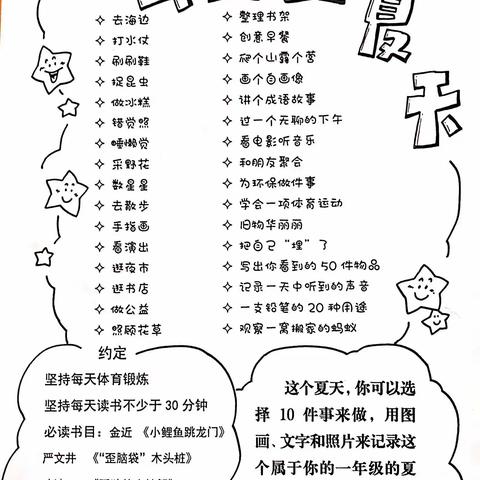 夏
天
✧ 去海边
✧ 打水仗
✧ 刷刷鞋
✧ 捉昆虫
✧ 做冰糕
✧ 错觉照
✧ 睡懒觉
✧ 采野花
✧ 数星星
✧ 去散步
✧ 手指画
✧ 看演出
✧ 逛夜市
✧ 逛书店
✧ 做公益
✧ 照顾花草
✧ 整理书架
✧ 创意早餐
✧ 爬个山露个营
✧ 画个自画像
✧ 讲个成语故事
✧ 过一个无聊的下午
✧ 看电影听音乐
✧ 和朋友聚会
✧ 为环保做件事
✧ 学会一项体育运动
✧ 旧物华丽丽
✧ 把自己“埋”了
✧ 写出你看到的 50 件物品
✧ 记录一天中听到的声音
✧ 一支铅笔的 20 种用途
✧ 观察一窝搬家的蚂蚁
约定
坚持每天体育锻炼
坚持每天读书不少于 30 分钟
必读书目：金近 《小鲤鱼跳龙门》
严文井 《“歪脑袋”木头桩》
这个夏天，你可以选
择 10 件事来做，用图
画、文字和照片来记录这
个属于你的一年级的夏